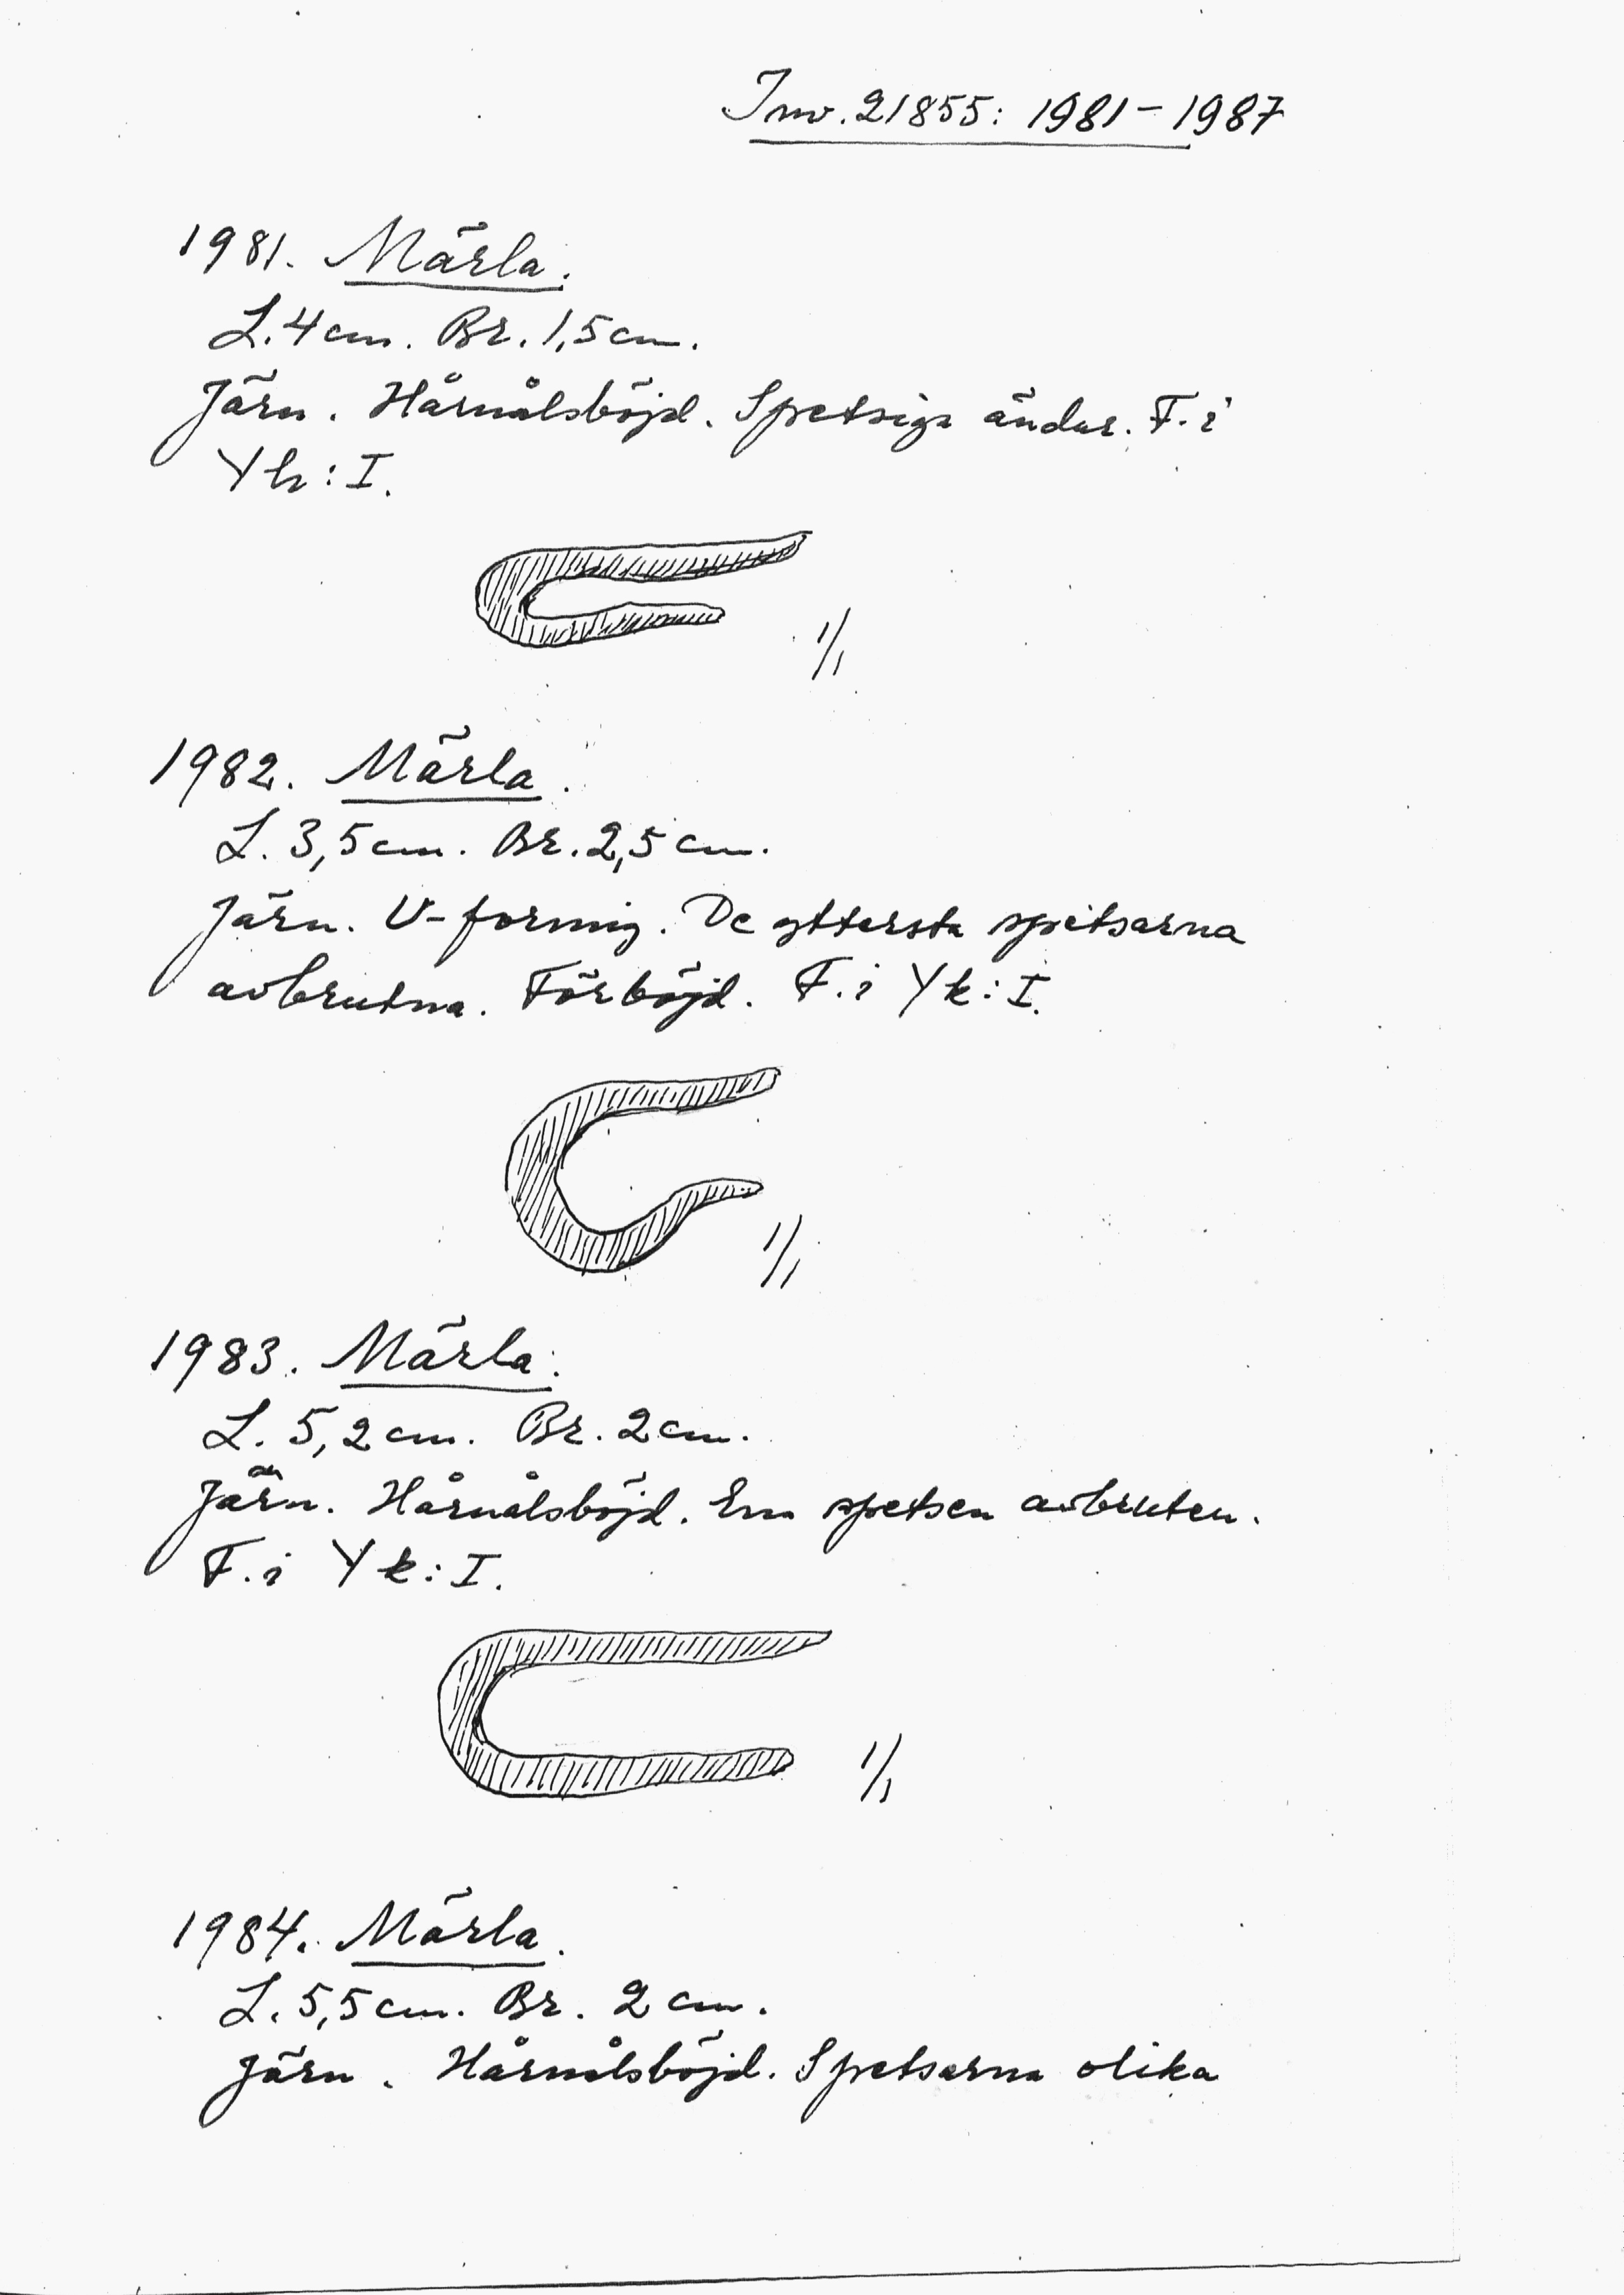 Inv. 21855: 1981-1987
1981. Märla.
L. 4 cm. Br. 1,5 cm.
Järn. Hårnålsböjd. Spetsiga ändar. F. i
Yk: I.
1/1
1982. Märla.
L. 3,5 cm. Br. 2,5 cm.
Järn. U-formig. De yttersta spetsarna
avbrutna. Förböjd. F. i Yk: I.
1/1
1983. Märla.
L. 5,2 cm. Br. 2 cm.
Järn. Hårnålsböjd. Ena spetsen avbruten.
F. i Yk: I.
1/1
1984. Märla.
L. 5,5 cm. Br. 2 cm.
Järn. Hårnålsböjd. Spetsarna olika